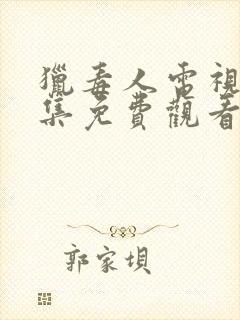 獵毒人電視
集免費觀看
郭家垻